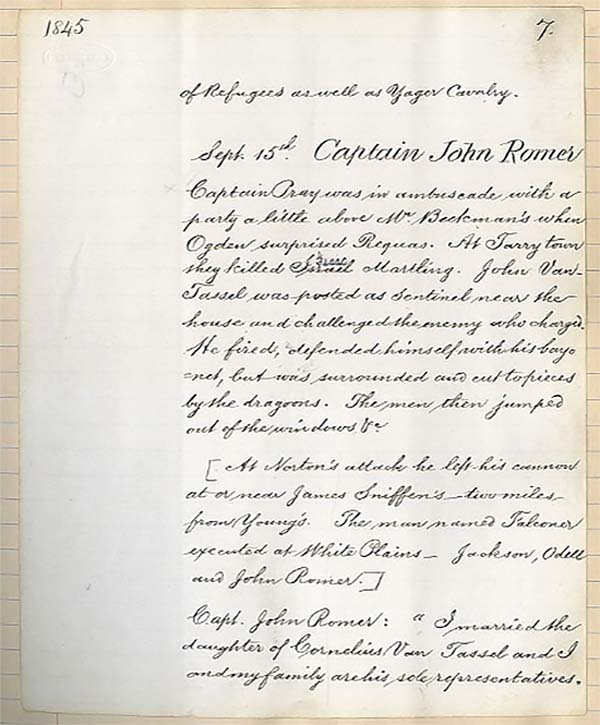 1845 7.
of Refugees as well as Yager Cavalry.
Sept. 15th. Captain John Romer
Captain Pray was in ambuscade with a
party a little above Mr. Beekman's when
Ogden surprised Requas. At Tarrytown
they killed Israel Martling. John Van-
Tassel was posted as sentinel near the
house and challenged the enemy who charged.
He fired, defended himself with his bayo
=net, but was surrounded and cut to pieces
by the dragoons. The men then jumped
out of the windows &c
[At Norton's attack he left his cannon
at or near James Sniffen's—two miles
from Young's. The man named Falconer
executed at White Plains — Jackson, Odell
and John Romer.]
Capt. John Romer: "I married the
daughter of Cornelius Van Tassel and I
and my family are his sole representatives.